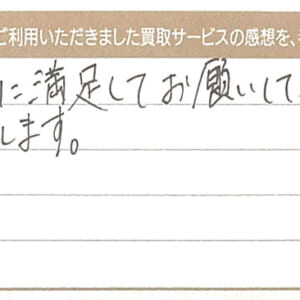 ご利用いただきました買取サービスの感想を、
に満足してお願いして
します。